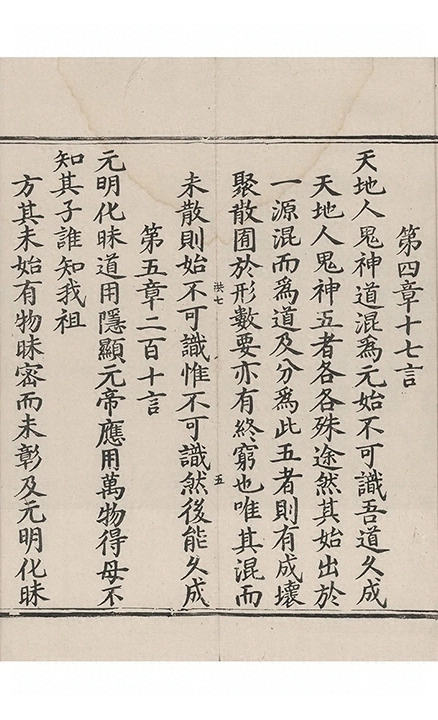 第四章十七言
天地人鬼神道混為元始不可識吾道久成
天地人鬼神五者各各殊途然其始出於
一源混而為道及分為此五者則有成壞
聚散囿於形數要亦有終窮也唯其混而
洪七
五
未散則始不可識惟不可識然後能久成
第五章二百十言
元明化昧道用隱顯元帝應用萬物得母不
知其子誰知我祖
方其未始有物昧密而未彰及元明化昧